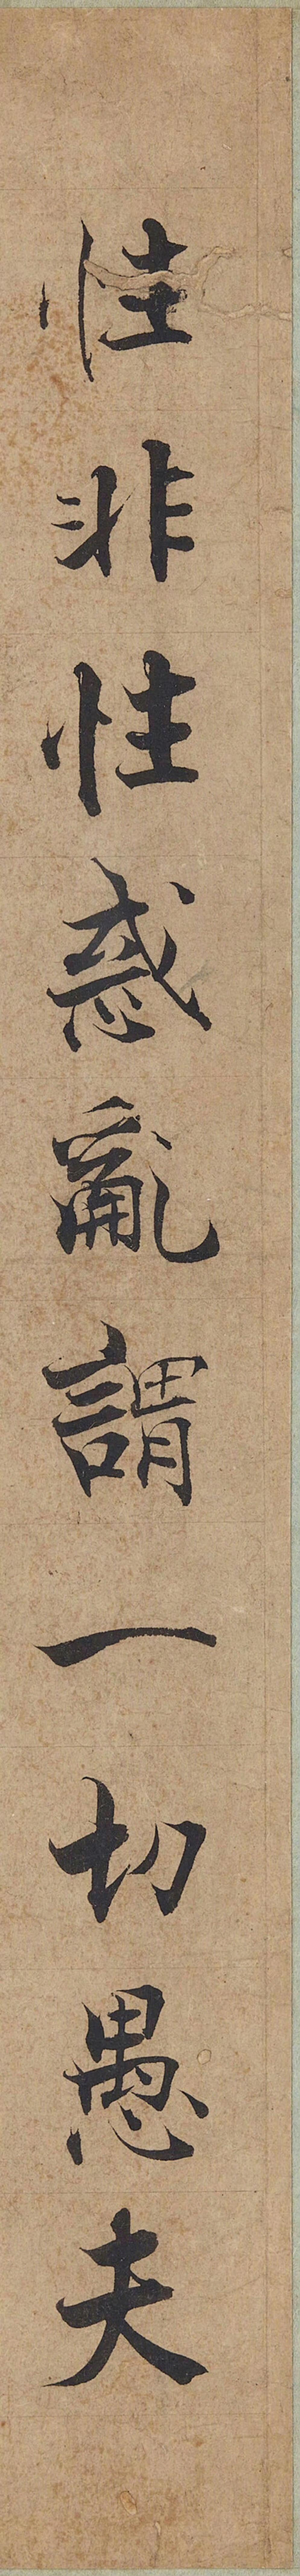 性非性惑亂謂一切愚夫